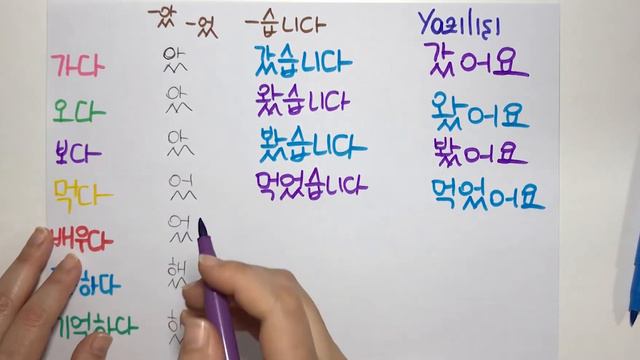 -았 -었 -습니다 Yazılışı
가다 았 갔습니다 갔어요
오다 았 왔습니다 왔어요
보다 았 봤습니다 봤어요
먹다 었 먹었습니다 먹었어요
배우다 었
하다 했
기억하다